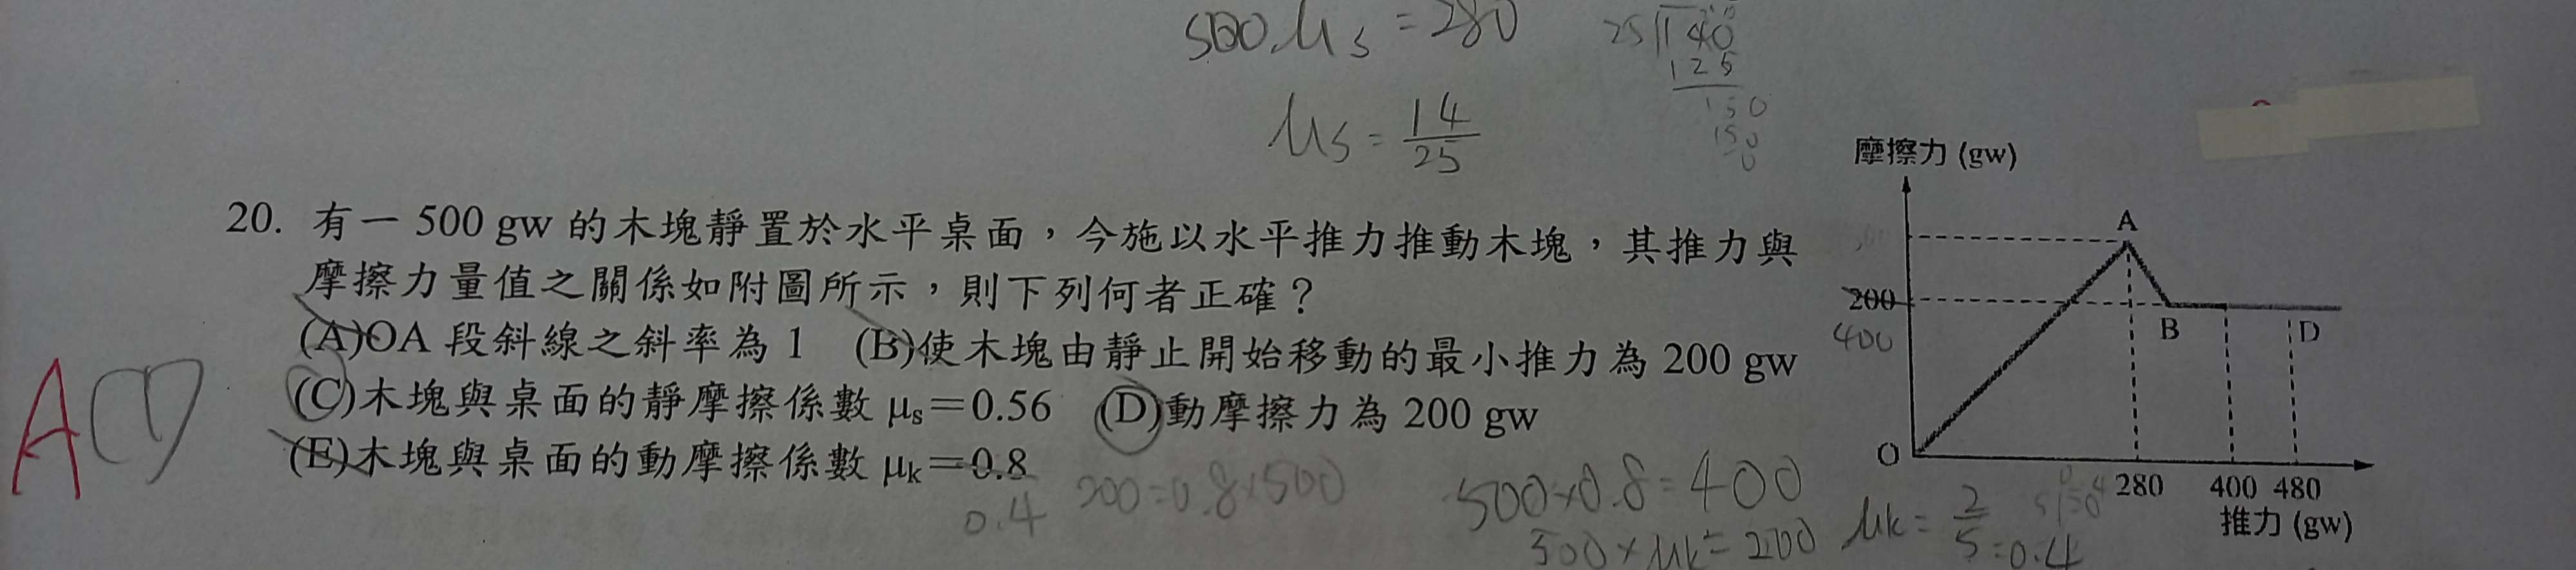 500.μs=280
25 140
125
150
150
0
μs=14/25
20. 有一 500 gw 的木塊靜置於水平桌面，今施以水平推力推動木塊，其推力與
摩擦力量值之關係如附圖所示，則下列何者正確？
(A)OA 段斜線之斜率為 1 (B)使木塊由靜止開始移動的最小推力為 200 gw
(C)木塊與桌面的靜摩擦係數 μs＝0.56 (D)動摩擦力為 200 gw
(E)木塊與桌面的動摩擦係數 μk＝0.8
A
0.4 200=0.8×500
500×0.8=400
500×μk=200
μk=2/5=0.4
摩擦力 (gw)
A
200
400
B
D
O
280 400 480
推力 (gw)